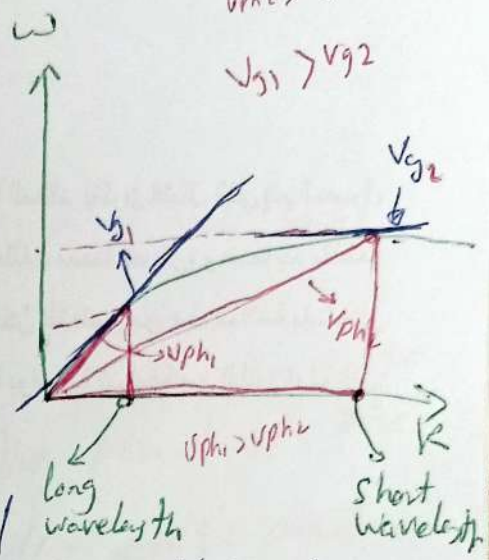 ω
Vg1 > Vg2
Vg2
Vg1
Vph1
Vph2
Vph1 > Vph2
K
long
wavelength
short
wavelength